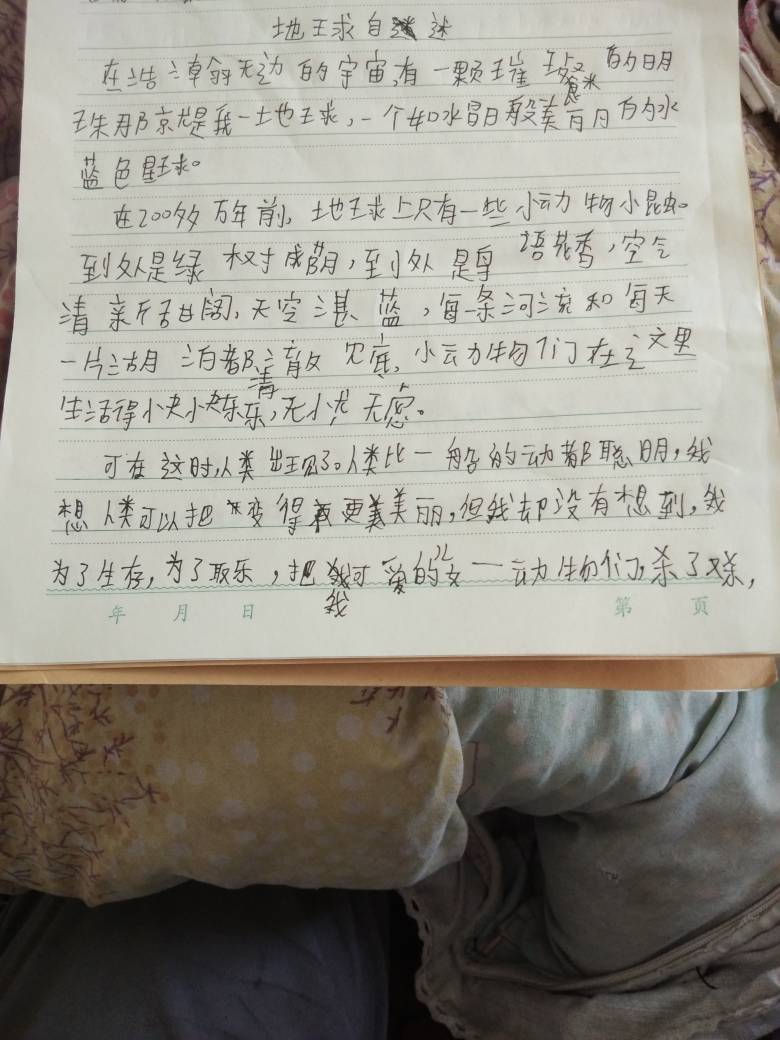 地球自述
在浩瀚无边的宇宙,有一颗璀璨的明
珠那就是我一地球,一个如水晶般美丽的水
蓝色星球。
在200多万年前,地球上只有一些小动物小昆虫。
到处是绿树成荫,到处是鸟语花香,空气
清新甘甜,天空湛蓝,每一条河流和每天
一片湖泊都清澈见底,小动物们在这里
生活得快快乐乐,无忧无虑。
可在这时,人类出现了。人类比一般的动都聪明,我
想人类可以把变得更美丽,但我却没有想到,我
为了生存,为了取乐,把我可爱的儿女一动物们,杀了又杀,
年 月 日 第 页